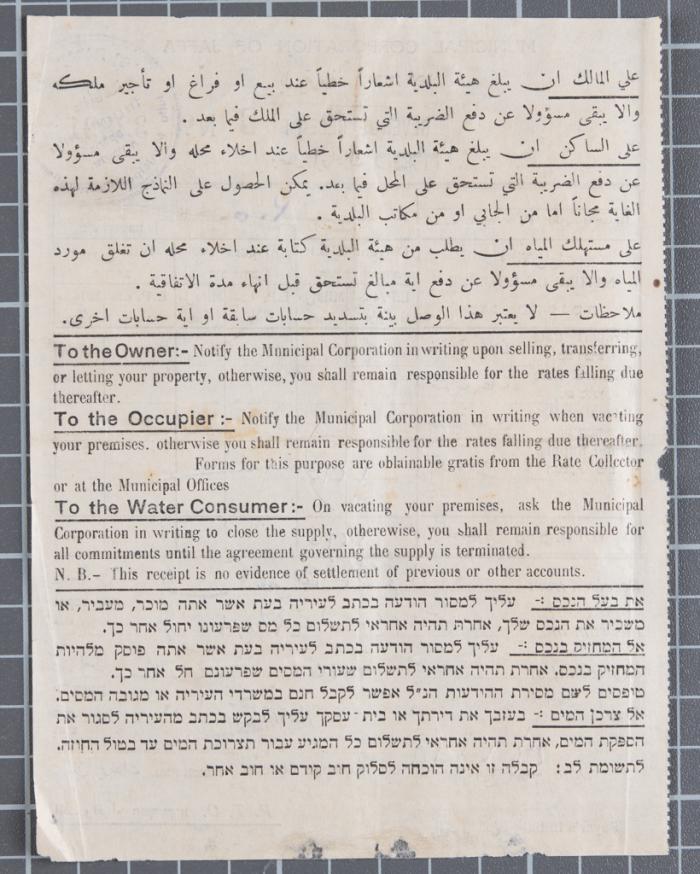 علي المالك ان يبلغ هيئة البلدية اشعاراً خطياً عند بيع او فراغ او تأجير ملكه
والا يبقى مسؤولا عن دفع الضريبة التي تستحق على الملك فيما بعد .
على الساكن ان يبلغ هيئة البلدية اشعاراً خطياً عند اخلاء محله والا يبقى مسؤولا
عن دفع الضريبة التي تستحق على المحل فيما بعد. يمكن الحصول على النماذج اللازمة لهذه
الغاية مجاناً اما من الجابي او من مكاتب البلدية .
على مستهلك المياه ان يطلب من هيئة البلدية كتابة عند اخلاء محله ان تغلق مورد
المياه والا يبقى مسؤولا عن دفع اية مبالغ تستحق قبل انهاء مدة الاتفاقية .
ملاحظات — لا يعتبر هذا الوصل بينة بتسديد حسابات سابقة او اية حسابات اخرى.
To the Owner:- Notify the Municipal Corporation in writing upon selling, transferring,
or letting your property, otherwise, you shall remain responsible for the rates falling due
thereafter.
To the Occupier :- Notify the Municipal Corporation in writing when vacating
your premises. otherwise you shall remain responsible for the rates falling due thereafter.
Forms for this purpose are oblainable gratis from the Rate Collector
or at the Municipal Offices
To the Water Consumer:- On vacating your premises, ask the Municipal
Corporation in writing to close the supply, otherewise, you shall remain responsible for
all commitments until the agreement governing the supply is terminated.
N. B.- This receipt is no evidence of settlement of previous or other accounts.
את בעל הנכס :- עליך למסור הודעה בכתב לעיריה בעת אשר אתה מוכר, מעביר, או
משכיר את הנכס שלך, אחרת תהיה אחראי לתשלום כל מס שפרעונו יחול אחר כך.
אל המחזיק בנכס :- עליך למסור הודעה בכתב לעיריה בעת אשר אתה פוסק מלהיות
המחזיק בנכס. אחרת תהיה אחראי לתשלום שעורי המסים שפרעונם חל אחר כך.
טופסים לשם מסירת ההידעות הנ״ל אפשר לקבל חנם במשרדי העיריה או מגובה המסים.
אל צרכן המים :- בעזבך את דירתך או בית-עסקך עליך לבקש בכתב מהעיריה לסגור את
הספקת המים, אחרת תהיה אחראי לתשלום כל המגיע עבור תצרוכת המים עד בטול החוזה.
לתשומת לב: קבלה זו אינה הוכחה לסלוק חוב קודם או חוב אחר.